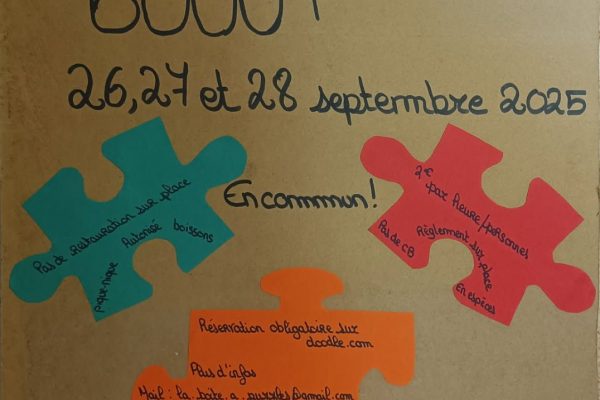 26, 27 et 28 septembre 2025
En commun!
Pas de restauration sur place
Autorisé boissons
pique-nique
2€
par heure/personnes
Règlement sur place
Pas de CB
En espèces
Réservation obligatoire sur
doodle.com
Plus d'infos
Mail : la.boite.a.puzzles@gmail.com